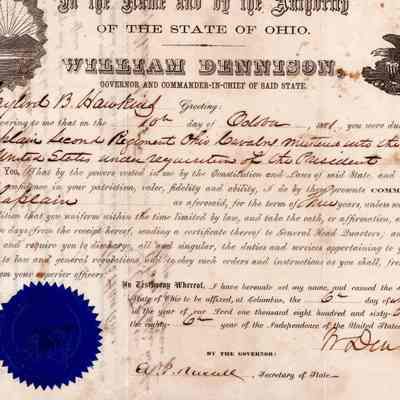 In the Name and by the Authority
OF THE STATE OF OHIO.
WILLIAM DENNISON,
GOVERNOR AND COMMANDER-IN-CHIEF OF SAID STATE.
B. Hawkins Greeting:
earing to me that on the 10th day of October, 1861, you were du
aplain Second Regiment Ohio Cavalry mustered into the
United States under requisition of the President
You, That by the powers vested in me by the Constitution and Laws of said State, and
confidence in your patriotism, valor, fidelity and ability, I do by these presents COMM
aplain as aforesaid, for the term of Three years, unless
dition that you uniform within the time limited by law, and take the oath, or affirmation,
days from the receipt hereof, sending a certificate thereof to General Head Quarters; an
and require you to discharge, all and singular, the duties and services appertaining to y
to law and general regulations, and to obey such orders and instructions as you shall, fr
om your superior officers.
In Testimony Whereof, I have hereunto set my name, and caused the
State of Ohio to be affixed, at Columbus, the 6th day of
in the year of our Lord one thousand eight hundred and sixty-
the eighty-6th year of the Independence of the United States
BY THE GOVERNOR:
W Den
Secretary of State